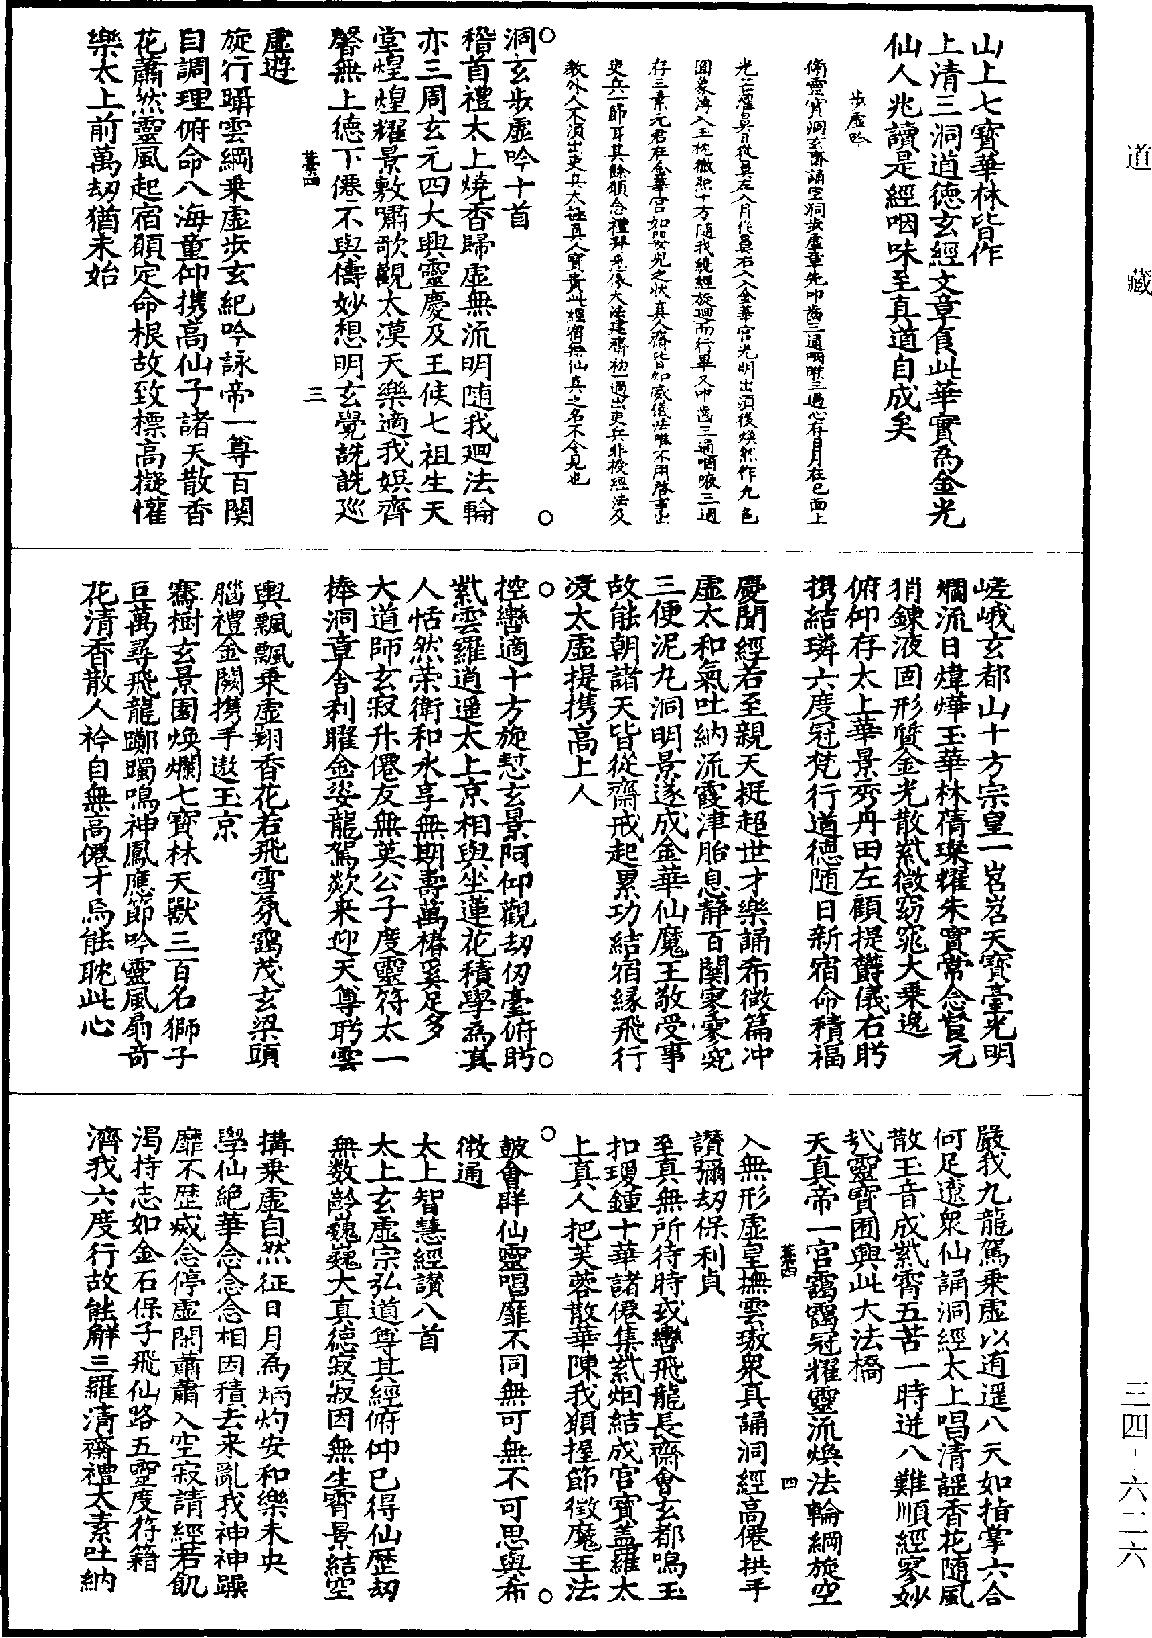 道藏
三四-六二六
山上七寶華林皆作
上清三洞道德玄經文章食此華實為金光
仙人兆讀是經咽味至真道自成矣
步虛吟
脩靈寶洞玄齋誦空洞步虛章先叩齒三通咽唾三過心存日月在己面上
光芒煌鼻日從鼻左入月從鼻右入金華宮光明出項後煥然作九色
圓象薄入玉枕徹照十方隨我繞經旋迴而行畢又叩齒三通咽液三過
存三素元君在金華宮如嬰兒之狀真人齋皆如威儀法唯不用啓事出
吏兵一節耳其餘願念禮拜悉依大法建齋初一過出吏兵非授經法及
教外人不須出吏兵太極真人寶貴此經宿無仙真之名不令見也
洞玄步虛吟十首
稽首禮太上燒香歸虛無流明隨我迴法輪
亦三周玄元四大興靈慶及王侯七祖生天
堂煌煌耀景敷嘯歌觀太漠天樂適我娛齊
馨無上德下僊不與儔妙想明玄覺詵詵巡
虛遊
旋行躡雲綱乘虛步玄紀吟詠帝一尊百關
自調理俯命八海童仰攜高仙子諸天散香
花蕭然靈風起宿願定命根故致標高擬懽
樂太上前萬劫猶未始
嵯峨玄都山十方宗皇一岧岧天寶臺光明
爓流日煒燁玉華林蒨璨耀朱實常念餐元
精鍊液固形質金光散紫微窈窕大乘逸
俯仰存太上華景秀丹田左顧提鬱儀右眄
攜結璘六度冠梵行道德隨日新宿命積福
慶聞經若至親天挺超世才樂誦希微篇冲
虛太和氣吐納流霞津胎息靜百關寥寥究
三便泥丸洞明景遂成金華仙魔王敬受事
故能朝諸天皆從齋戒起累功結宿緣飛行
凌太虛提攜高上人
控轡適十方旋憩玄景阿仰觀劫仞臺俯眄
紫雲羅逍遥太上京相與坐蓮花積學為真
人恬然榮衛和永享無期壽萬椿奚足多
大道師玄寂升僊友無英公子度靈符太一
捧洞章舍利曜金姿龍駕欻來迎天尊眄雲
輿飄飄乘虛翔香花若飛雪氛靄茂玄梁頭
腦禮金闕攜手遨玉京
騫樹玄景園煥爛七寶林天獸三百名獅子
巨萬尋飛龍躑躅鳴神鳳應節吟靈風扇奇
花清香散人衿自無高僊才焉能耽此心
嚴我九龍駕乘虛以逍遥八天如指掌六合
何足遼衆仙誦洞經太上唱清謠香花隨風
散玉音成紫霄五苦一時迸八難順經寥妙
哉靈寶囿興此大法橋
天真帝一宮靄靄冠耀靈流煥法輪綱旋空
入無形虛皇撫雲璈衆真誦洞經高僊拱手
讚彌劫保利貞
至真無所待時或轡飛龍長齋會玄都鳴玉
扣瓊鍾十華諸僊集紫烟結成宮寶蓋羅太
上真人把芙蓉散華陳我願握節徵魔王法
皷會群仙靈唱靡不同無可無不可思與希
微通
太上智慧經讚八首
太上玄虛宗弘道尊其經俯仰已得仙歷劫
無數齡巍巍大真德寂寂因無生霄景結空
搆乘虛自然征日月為炳灼安和樂未央
學仙絕華念念念相因積去來亂我神神躁
靡不歷滅念停虛閑蕭蕭入空寂請經若飢
渴持志如金石保子飛仙路五靈度符籍
濟我六度行故能解三羅清齋禮太素吐納